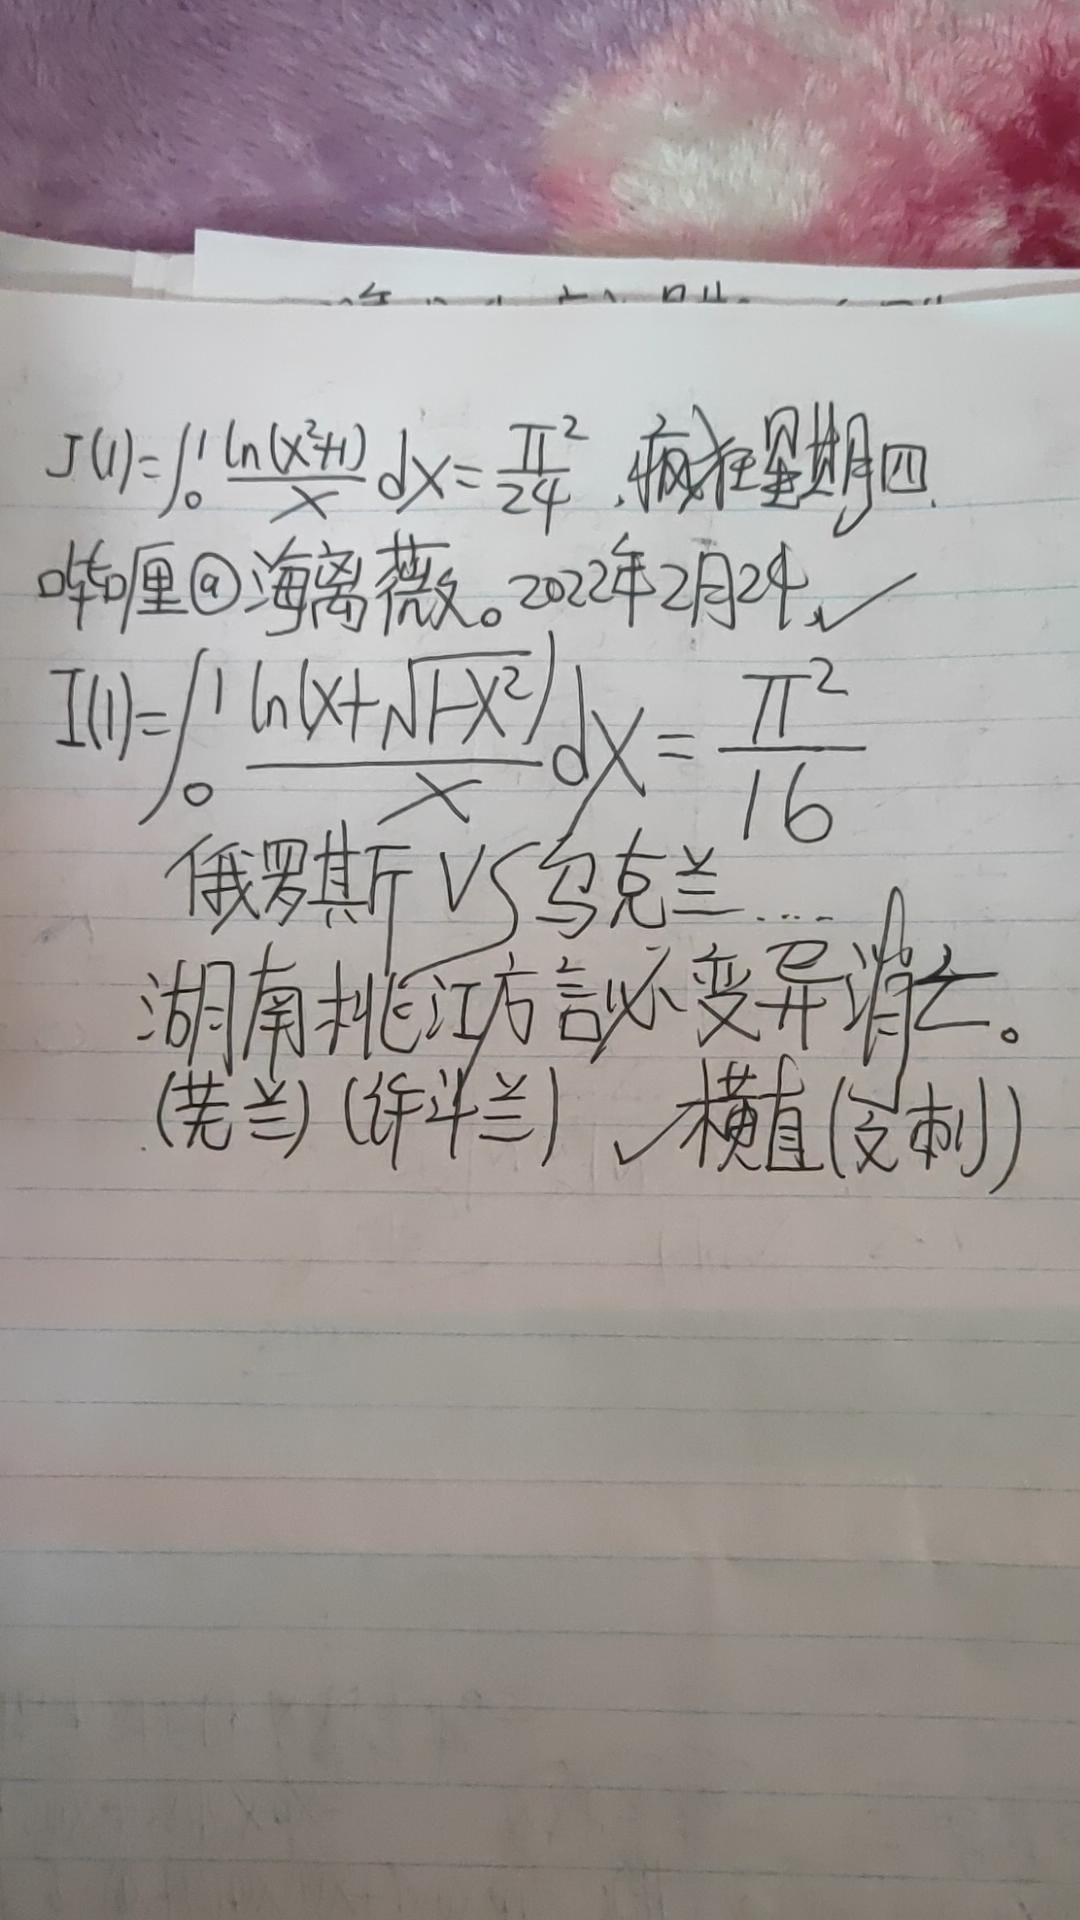 J(1)=∫₀¹ ln(x²+1)/x dx = π²/24 .疯狂星期四.
哔哩@海离薇。2022年2月24.✓
I(1)=∫₀¹ ln(x+√(1-x²))/x dx = π²/16
俄罗斯VS乌克兰....
湖南桃江方言必变异消亡。
(芜兰)(纤斗兰) ✓横直(文刺)